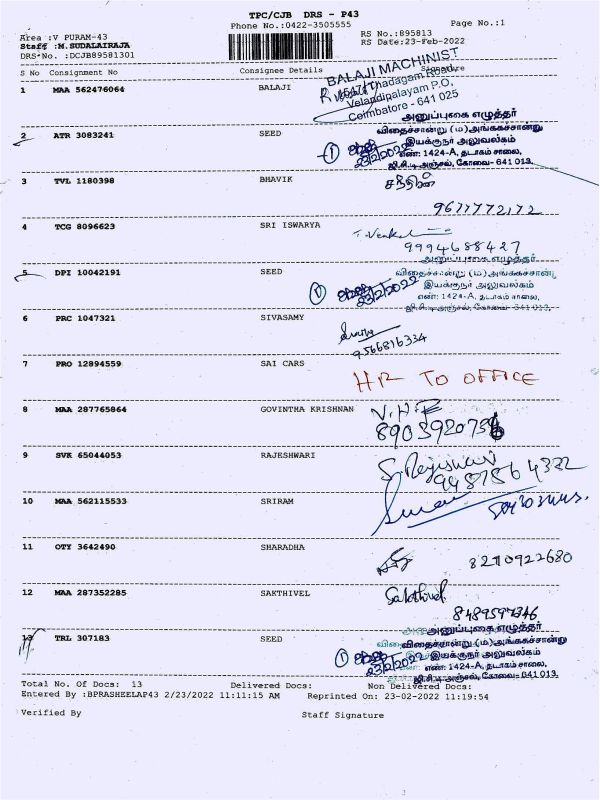 TPC/CJB DRS - P43
Phone No.:0422-3505555
Page No.:1
Area :V PURAM-43
RS No.:895813
Staff :M.SUDALAIRAJA
RS Date:23-Feb-2022
DRS No. :DCJB89581301
S No Consignment No Consignee Details Signature
1 MAA 562476064 BALAJI
BALAJI MACHINIST
Thadagam Road,
Velandipalayam P.O,
Coimbatore - 641 025
2 ATR 3083241 SEED
அனுப்புகை எழுத்தர்
விதைச்சான்று (ம) அங்ககச்சான்று
இயக்குநர் அலுவலகம்
எண்: 1424-A, தடாகம் சாலை,
ஜி.சி.டி அஞ்சல், கோவை - 641 013.
1 23/2/2022
3 TVL 1180398 BHAVIK
9677772172
4 TCG 8096623 SRI ISWARYA
T. Venkat
9994688427
5 DPI 10042191 SEED
அனுப்புகை எழுத்தர்
விதைச்சான்று (ம) அங்ககச்சான்று
இயக்குநர் அலுவலகம்
எண்: 1424-A, தடாகம் சாலை,
ஜி.சி.டி அஞ்சல், கோவை - 641 013.
1 23/2/2022
6 PRC 1047321 SIVASAMY
9566816334
7 PRO 12894559 SAI CARS
HR TO OFFICE
8 MAA 287765864 GOVINTHA KRISHNAN
9 SVK 65044053 RAJESHWARI
10 MAA 562115533 SRIRAM
11 OTY 3642490 SHARADHA
8210922680
12 MAA 287352285 SAKTHIVEL
Sakthivel
13 TRL 307183 SEED
அனுப்புகை எழுத்தர்
விதைச்சான்று (ம) அங்ககச்சான்று
இயக்குநர் அலுவலகம்
எண்: 1424-A, தடாகம் சாலை,
ஜி.சி.டி அஞ்சல், கோவை - 641 013.
1 23/2/2022
Total No. Of Docs: 13 Delivered Docs: Non Delivered Docs:
Entered By :BPRASHEELAP43 2/23/2022 11:11:15 AM Reprinted On: 23-02-2022 11:19:54
Verified By Staff Signature